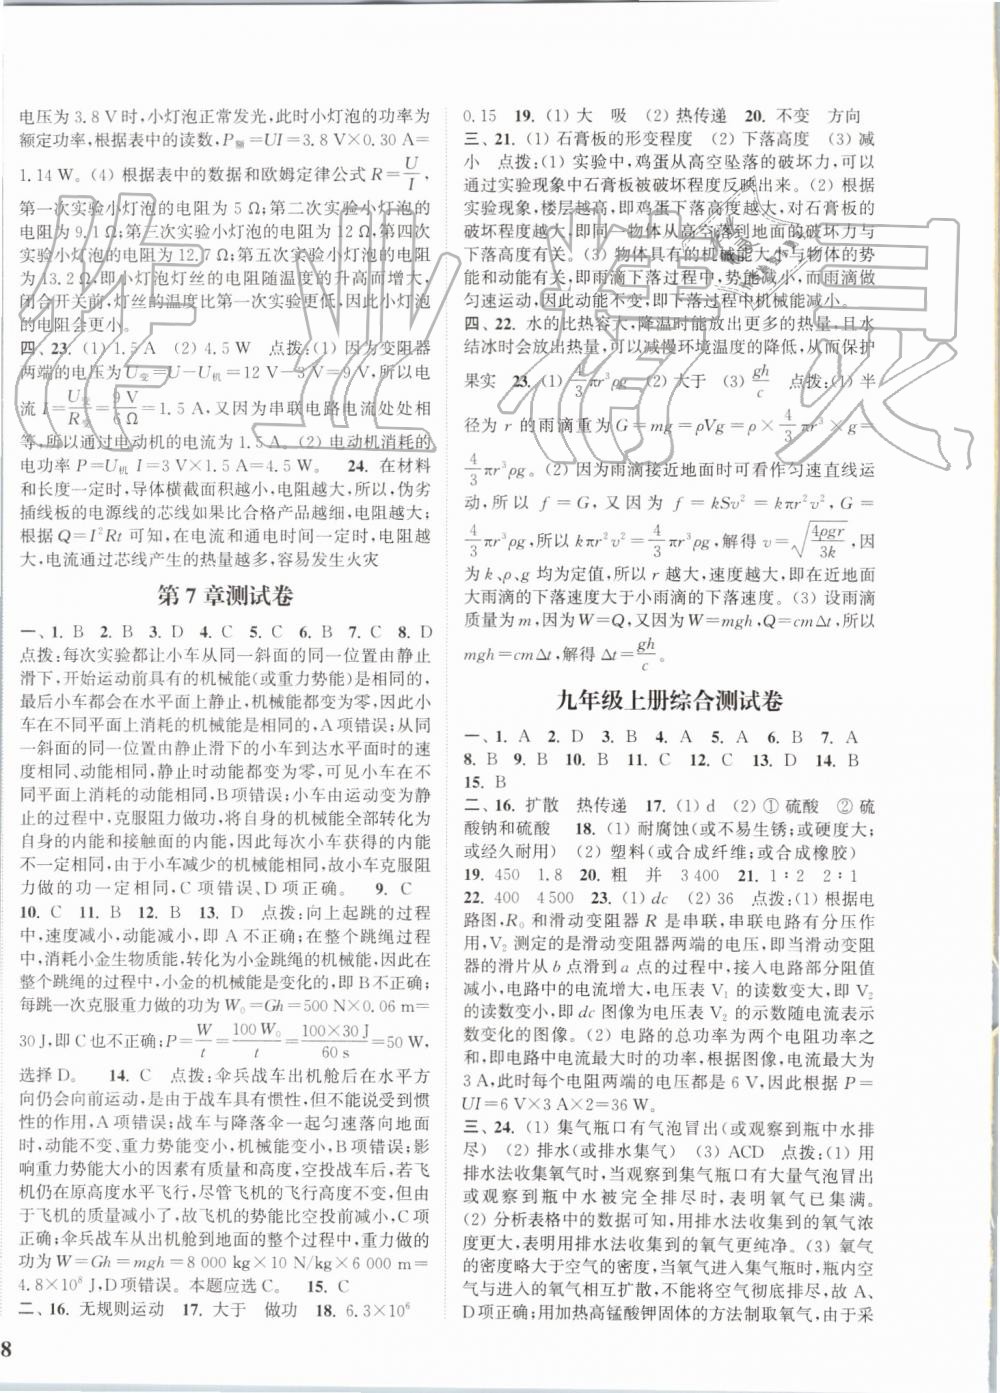 电压为 3.8 V时，小灯泡正常发光，此时小灯泡的功率为
额定功率，根据表中的读数，P额＝UI＝3.8 V×0.30 A＝
1.14 W。(4) 根据表中的数据和欧姆定律公式 R＝U/I，
第一次实验小灯泡的电阻为 5 Ω；第二次实验小灯泡的
电阻为 9.1 Ω；第三次实验小灯泡的电阻为 12 Ω，第四次
实验小灯泡的电阻为 12.7 Ω；第五次实验小灯泡的电阻
为 13.2 Ω，即小灯泡灯丝的电阻随温度的升高而增大，
闭合开关前，灯丝的温度比第一次实验更低，因此小灯泡
的电阻会更小。
四、23. (1) 1.5 A (2) 4.5 W 点拨：(1) 因为变阻器
两端的电压为 U变＝U－U机＝12 V－3 V＝9 V，所以电
流 I＝U变/R变＝9 V/6 Ω＝1.5 A，又因为串联电路电流处处相
等，所以通过电动机的电流为 1.5 A。(2) 电动机消耗的
电功率 P＝U机 I＝3 V×1.5 A＝4.5 W。 24. 在材料
和长度一定时，导体横截面越小，电阻越大，所以，伪劣
插线板的电源线的芯线如果比合格产品越细，电阻越大，
根据 Q＝I²Rt 可知，在电流和通电时间一定时，电阻越
大，电流通过芯线产生的热量越多，容易发生火灾
第 7 章测试卷
一、1. B 2. B 3. D 4. C 5. C 6. C 7. C 8. D
点拨：每次实验都让小车从同一斜面的同一位置由静止
滑下，开始运动前具有的机械能(或重力势能)是相同的，
最后小车都会在水平面上静止，机械能都变为零，所以小
车在不同平面上消耗的机械能是相同的，A 项错误；从同
一斜面的同一位置由静止滑下的小车到达水平面时的速
度相同、动能相同，静止时动能都变为零，可见小车在不同
平面上消耗的动能相同，B 项错误；小车由运动变为静
止的过程中，克服阻力做功，将自身的机械能全部转化为
自身的内能和接触面的内能，因此每次小车获得的内能
不一定相同，由于小车减少的机械能相同，故小车克服阻
力做的功一定相同，C 项错误、D 项正确。 9. C
10. C 11. B 12. B 13. D 点拨：向上起跳的过程
中，速度减小，动能减小，即 A 不正确；在整个跳绳过程
中，消耗小金生物质能，转化为小金跳绳的机械能，因此
整个跳绳的过程中，小金的机械能是变化的，即 B不正确；
每跳一次克服重力做的功为 W₀＝Gh＝500 N×0.06 m＝
30 J，即 C 也不正确；P＝W/t＝100 W₀/t＝100×30 J/60 s＝50 W，
选择 D。 14. C 点拨：伞兵战车出机舱后在水平方
向仍会向前运动，是由于战车具有惯性，但不能说受到惯
性的作用，A 项错误；战车与降落伞一起匀速落向地面
时，动能不变、重力势能变小，机械能变小，B 项错误；影
响重力势能大小的因素有质量和高度，空投战车后，若飞
机仍在原高度水平飞行，尽管飞机的高度没有变化，但由
于飞机的质量减小了，故飞机的势能比空投前减小，C 项
正确；伞兵战车从出机舱到地面的整个过程中，重力做的
功为 W＝Gh＝mgh＝8 000 kg×10 N/kg×6 000 m＝
4.8×10⁸ J，D 项错误。本题应选 C。 15. C
二、16. 无规则运动 17. 大于 做功 18. 6.3×10⁶
0.15 19. (1) 大 吸 (2) 热传递 20. 不变 方向
三、21. (1) 石膏板的形变程度 (2) 下落高度 (3) 减
小 点拨：(1) 实验中，鸡蛋从高空坠落的破坏力，可以
通过实验现象中石膏板被破坏程度反映出来。(2) 根据
实验现象，楼层越高，即鸡蛋下落高度越大，对石膏板的
破坏程度越大，即物体从高空落到地面的破坏力与下落
高度有关。(3) 物体具有的机械能大小与物体的势能
和动能有关，即雨滴下落过程中，势能减小，而雨滴做
匀速运动，因此动能不变，即下落过程中机械能减小。
四、22. 水的比热容大，降温时能放出更多的热量，且水
结冰时会放出热量，可以减慢环境温度的降低，从而保护
果实 23. (1) 4/3πr³ρg (2) 大于 (3) gh/c 点拨：(1) 半
径为 r 的雨滴重为 G＝mg＝ρVg＝ρ×4/3πr³×g＝
4/3πr³ρg。(2) 因为雨滴接近地面时可看作匀速直线运
动，所以 f＝G，又因为 f＝kSv²＝kπr²v²，G＝
4/3πr³ρg，所以 kπr²v²＝4/3πr³ρg，解得 v＝√(4ρgr/3k)，因
为 k、ρ、g 均为定值，所以 r 越大，速度越大，即在近地面
大雨滴的下落速度大于小雨滴的下落速度。(3) 设雨滴
质量为 m，因为 W＝Q，又因为 W＝mgh，Q＝cmΔt，所以
mgh＝cmΔt，解得 Δt＝gh/c。
九年级上册综合测试卷
一、1. A 2. D 3. B 4. A 5. A 6. B 7. A
8. B 9. B 10. B 11. A 12. B 13. D 14. B
15. B
二、16. 扩散 热传递 17. (1) d (2) ① 硫酸 ② 硫
酸钠和硫酸 18. (1) 耐腐蚀(或不易生锈；或硬度大；
或经久耐用) (2) 塑料(或合成纤维；或合成橡胶)
19. 450 1.8 20. 粗 并 3 400 21. 1∶2 2∶1
22. 400 4 500 23. (1) dc (2) 36 点拨：(1) 根据电
路图，R₀ 和滑动变阻器 R 是串联，串联电路有分压作
用，V₂ 测定的是滑动变阻器两端的电压，即当滑动变阻
器的滑片从 b 点滑到 a 点的过程中，接入电路部分阻值
减小，电路中的电流增大，电压表 V₁ 的读数变大，即 V₂
的读数变小，即 dc 图像为电压表 V₂ 的示数随电流表示
数变化的图像。(2) 电路的总功率为两个电阻功率之
和，即电路中电流最大时的功率，根据图像，电流最大为
3 A，此时每个电阻两端的电压都是 6 V，因此根据 P＝
UI＝6 V×3 A×2＝36 W。
三、24. (1) 集气瓶口有气泡冒出(或观察到瓶中水排
尽) (2) 排水(或排水集气) (3) ACD 点拨：(1) 用
排水法收集氧气时，当观察到集气瓶口有大量气泡冒出
或观察到瓶中水被完全排尽时，表明氧气已集满。
(2) 分析表格中的数据可知，用排水法收集到的氧气浓
度更大，表明用排水法收集到的氧气更纯净。(3) 氧气
的密度略大于空气的密度，当氧气进入集气瓶时，瓶内空
气与进入的氧气相互扩散，不能将空气彻底排尽，故 A、
D 项正确；用加热高锰酸钾固体的方法制取氧气，由于采
8
作业精灵